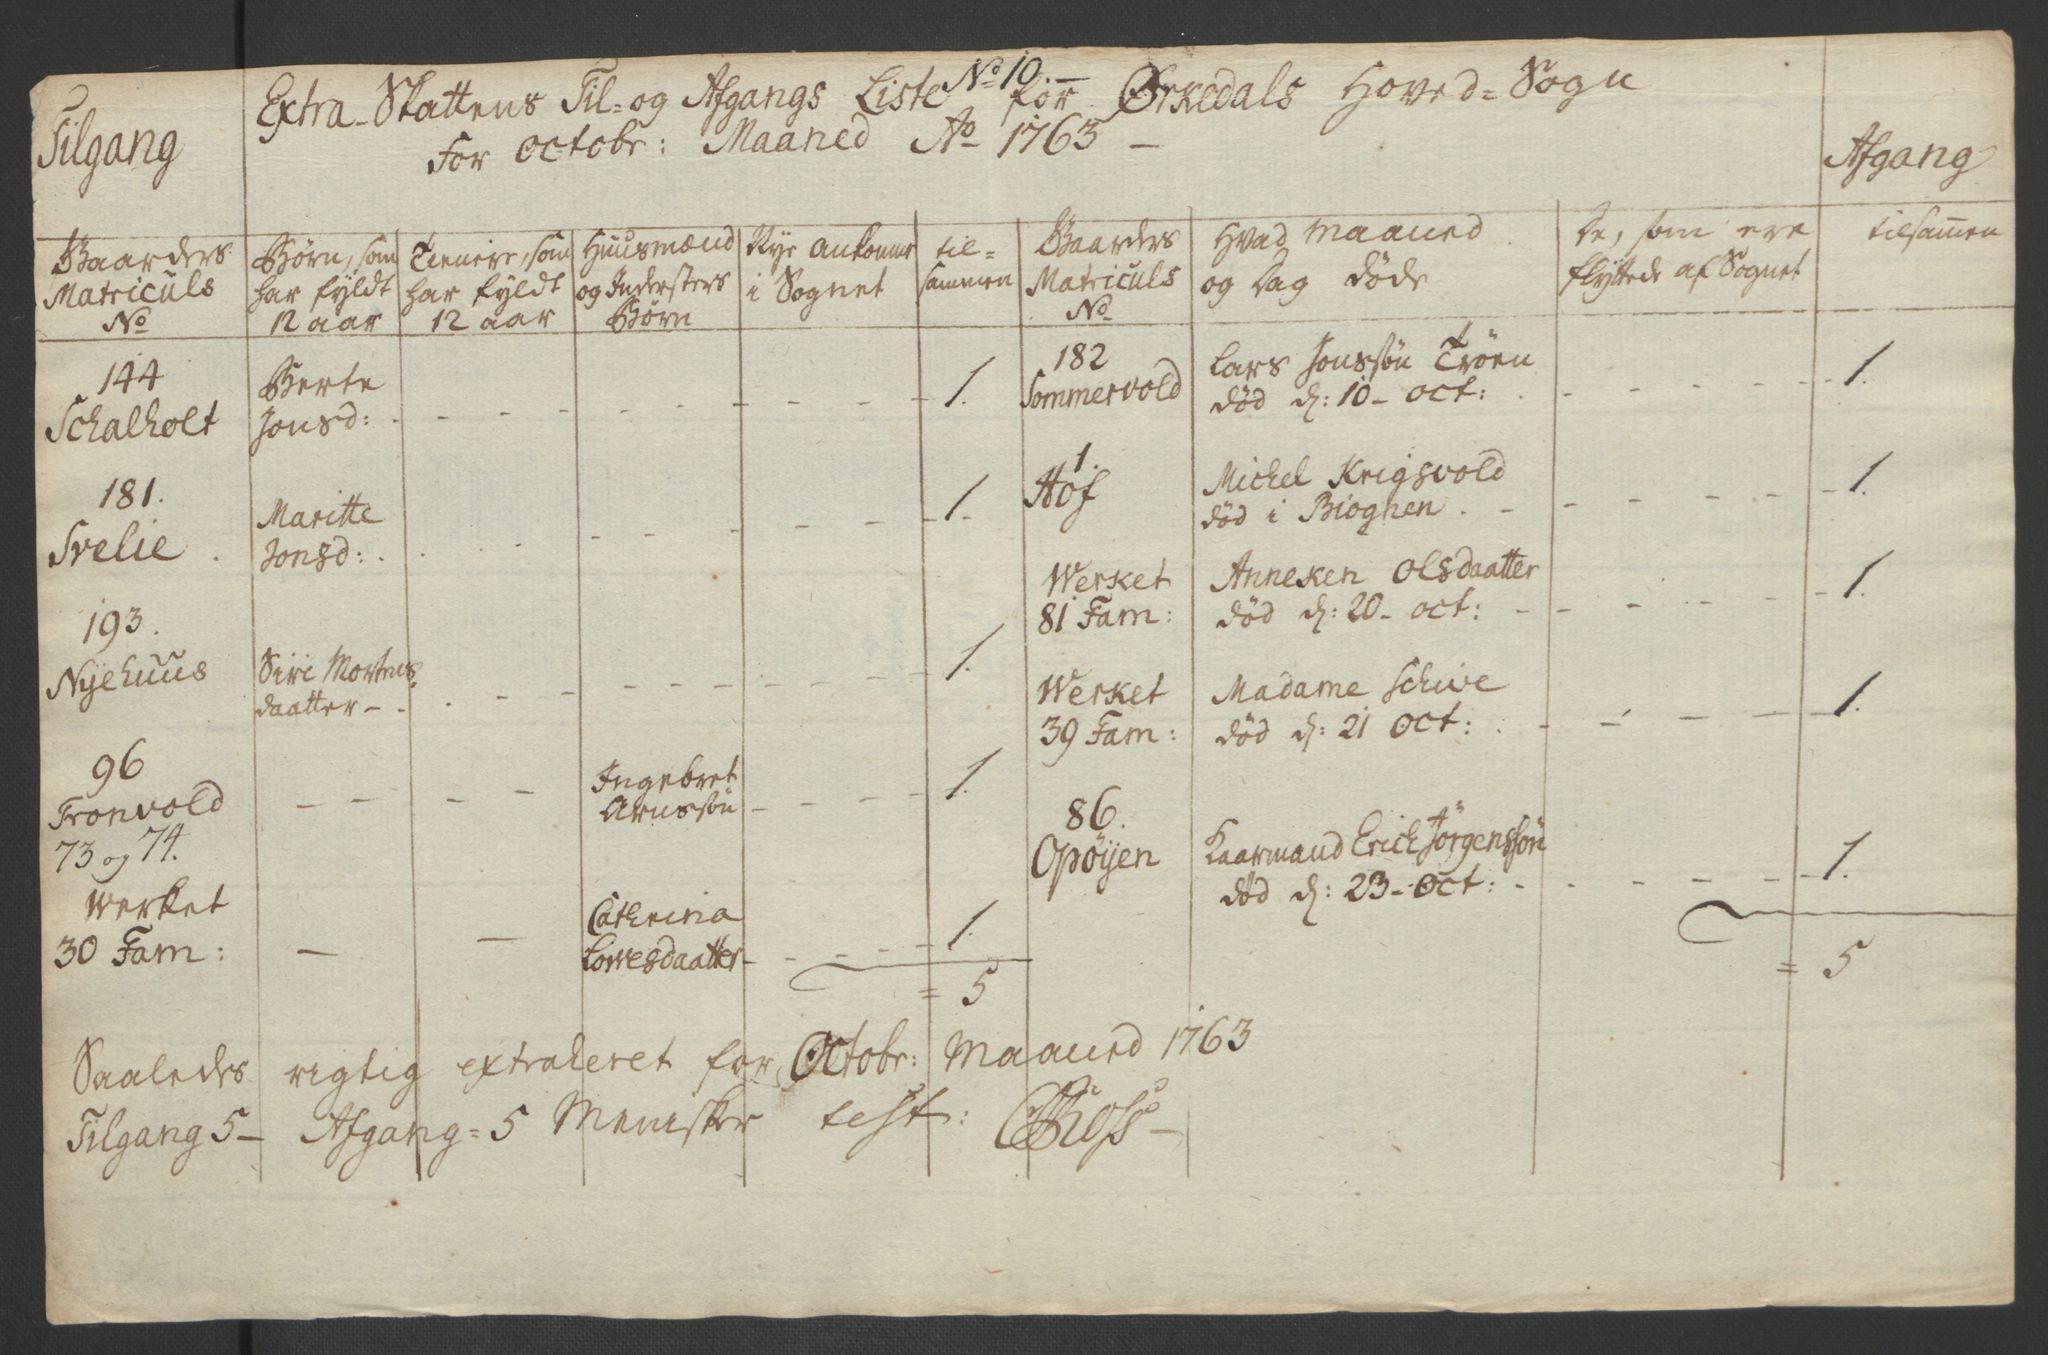 Extra-Skattens Til- og Afgangs Liste No 10 for Ørkedals Hoved-Sogn
For octobr: Maaned Ao 1763
Tilgang
Afgang
Gaarders Matriculs No
Børn, som har fyldt 12 aar
Tienere, som har fyldt 12 aar
Huusmænd og Indersters Børn
Nye Ankomne i Sognet
til-sammen
Gaarders Matriculs No
Hvad Maaned og Dag døde
De, som ere flyttede af Sognet
tilsamen
144 Schalholt
Berte Jonsd:
1.
181. Svelie
Maritte Jonsd:
1.
193. Nyehuus
Siri Mortens daatter
1.
96 Fronvold
Ingebret Arnssøn
1.
73 og 74.
Werket 30 Fam:
Cathrina Lorresdaatter
1.
= 5
182 Sommervold
Lars Jonssøn Trøen
død d: 10- oct:
1.
1. Hof
Michel Krigsvold
død i Biognen
1.
Werket 81 Fam:
Anneken Olsdaatter
død d: 20- oct:
1.
Werket 39 Fam:
Madame Schive
død d: 21 Oct:
1.
86. Opøyen
Kaarmand Erich Jørgenssøn
død d: 23- Oct:
1.
= 5
Saaledes rigtig extraheret for Octobr: Maaned 1763
Tilgang 5- Afgang = 5 Menisker test: